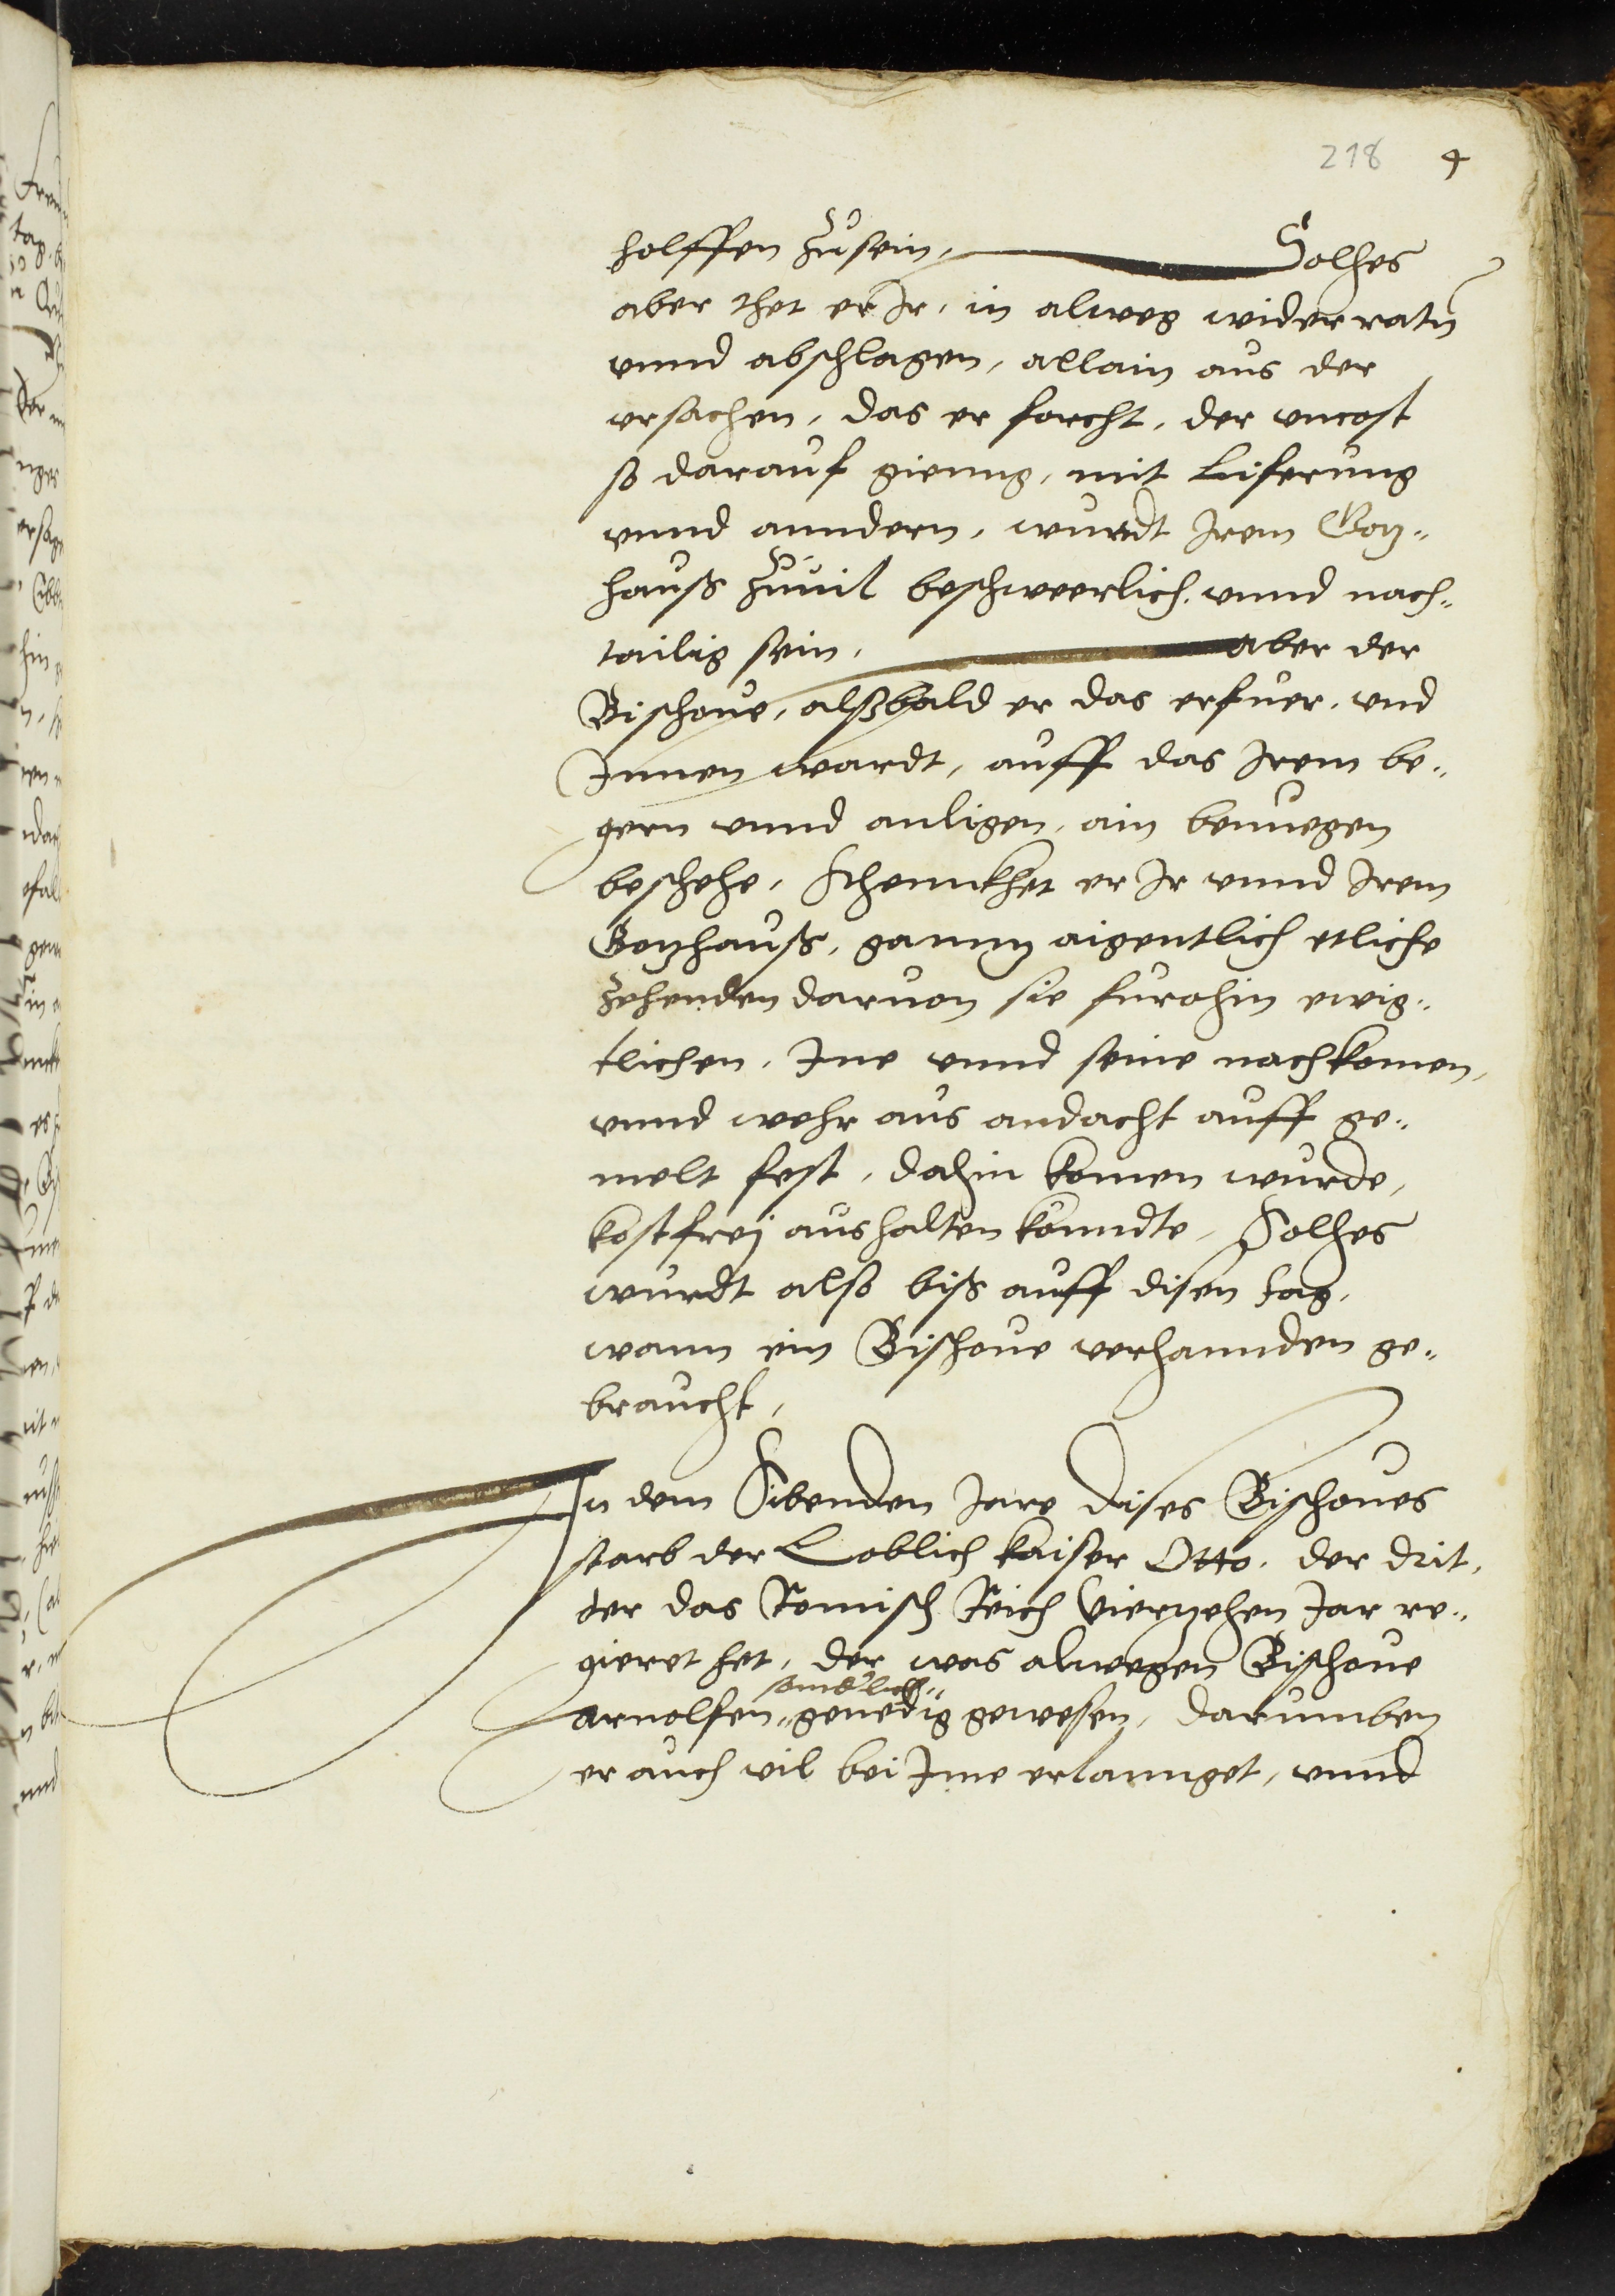 218 4
holffen zusein, Solhes
aber thet er Ir, in alweg widerratn
vnnd abschlagen, allain aus der
vrsachen, das er forcht, der vncost
so darauf gienng, mit Liferung
vnnd anndern, wurdt Irem Goz„
hauß zuuil beschweerlich vnnd nach„
tailig sein, aber der
Bischoue, alßbald er das erfuer, vnd
Innen wardt, auff das Irem be„
gern vnnd anligen, ain benuegen
beschehe, schennkhet er Ir vnnd Irem
Gozhauß, gannz aigentlich etliche
zehenden daruon sie furohin ewig„
tlichen, Ine vnnd seine nachkomen,
vnnd wehr aus andacht auff ge„
melt fest, dahin komen wurde,
kostfrej aushalten konndte, Solhes
wurdt also biß auff disen tag,
wann ein Bischoue verhannden ge„
braucht,
In dem Sibenden Jare dises Bischoues
starb der Loblich kaiser Otto, der drit,
ter das Romisch Reich Vierzehen Jar re„
gieret het, der was alwegen Bischoue
sonderlich„
Arnolfen„ genedig gewesen, darumben
er auch vil bei Ime erlannget, vnnd